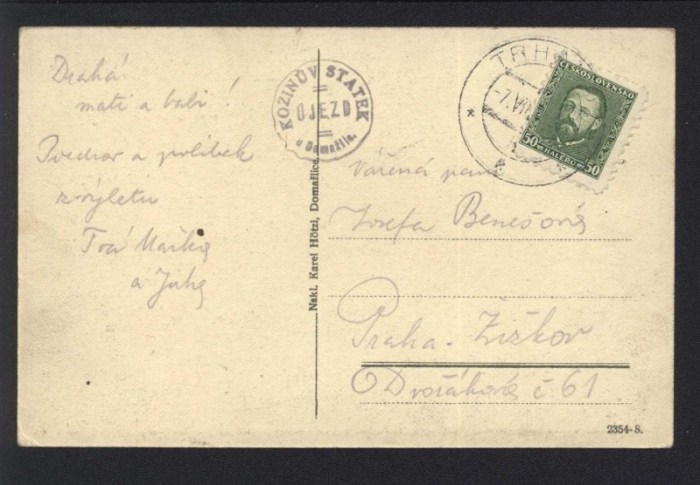 Drahá
mati a babi!
Pozdrav a polibek
z výletu
Tvá Mařka
a
KOZINŮV STATEK
ÚJEZD
u Domažlic.
Nakl. Karel Hötzl, Domažlice.
TRH
-7.VII
ČESKOSLOVENSKO
50 HALÉŘŮ 50
Vážená paní
Josefa Benešová
Praha-Žižkov
Dvořákova č 61
2354-8.